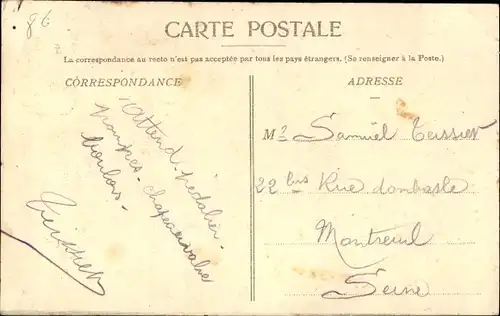 86
CARTE POSTALE
La correspondance au recto n'est pas acceptée par tous les pays étrangers. (Se renseigner à la Poste.)
CORRESPONDANCE
ADRESSE
J'attend pédalier.
pompes - chapeau valve
boulons -
Teissier
Mr Samuel Teissier
22 bis Rue dombasle
Montreuil
Seine